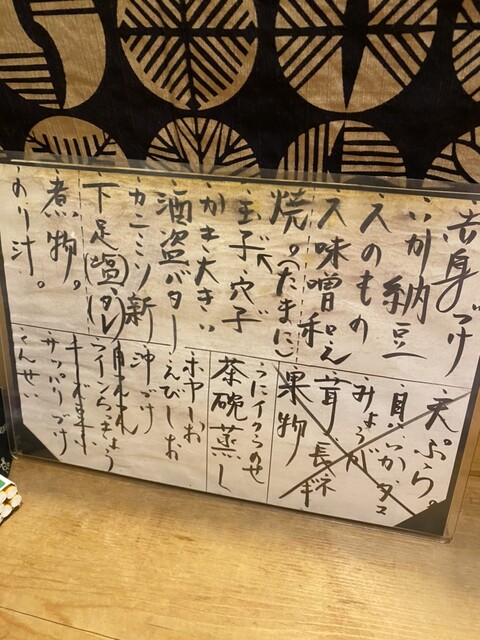 赤身づけ
いか納豆
スのもの
ス味噌和え
焼。(たまに)
玉子 穴子
かき大きい
酒盗バター
カニミソ新
下足(塩)(タレ)
煮物。
のり汁。
天ぷら。
貝 いか タコ
みょうが
茸 長ネギ
果物
うにイクラのせ
茶碗蒸し
ホヤしお
えびしお
沖づけ
チーズ
サッパリづけ
くんせい